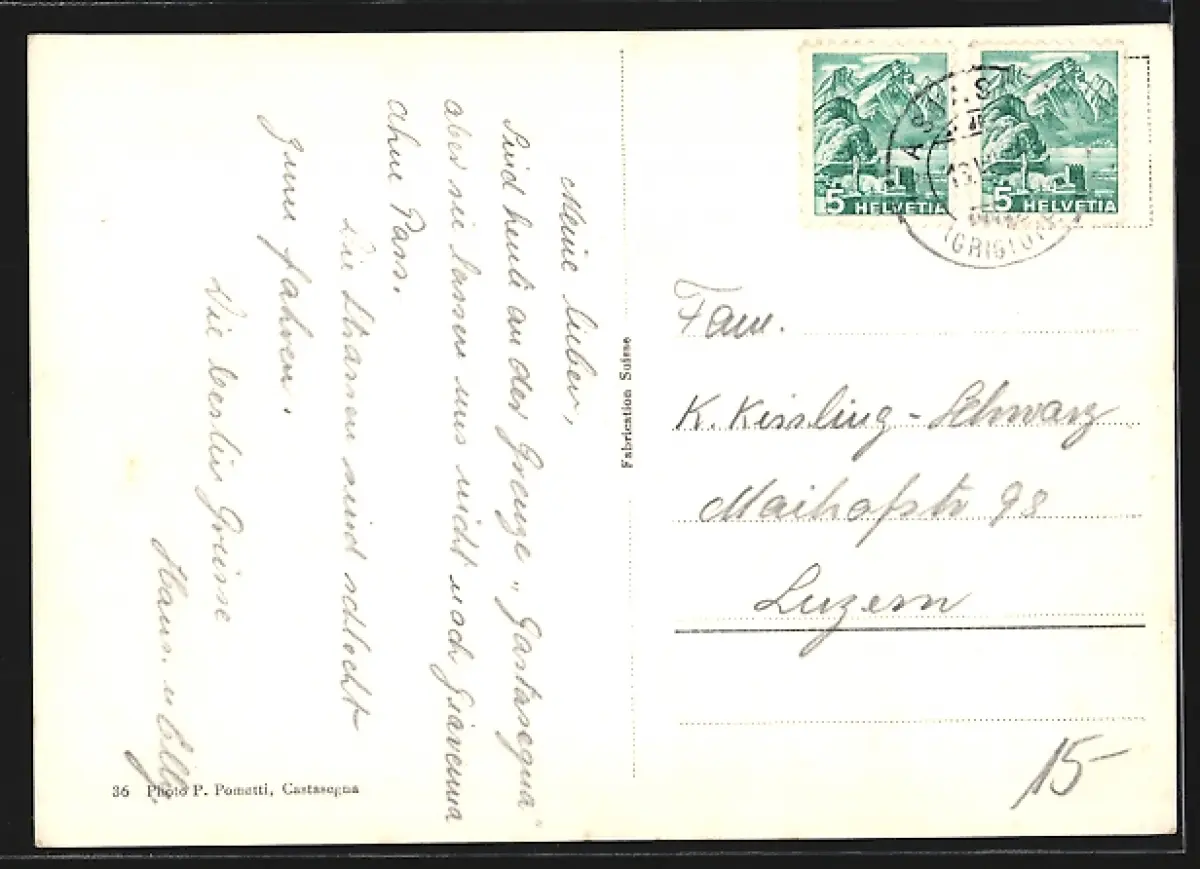 Meine lieben,
Sind heute an der Grenze „Gastasegna"
aber sie lassen uns nicht nach Giavenna
ohne Pass.
Die Strassen sind schlecht
zum fahren.
Die besten Grüsse
Hans. u Elly.
36 Photo P. Pometti, Castasegna
Fabrication Suisse
5 HELVETIA
5 HELVETIA
(GRIGIONI)
Fam.
K. Kissling-Schwarz
Maihofstr 98
Luzern
15-